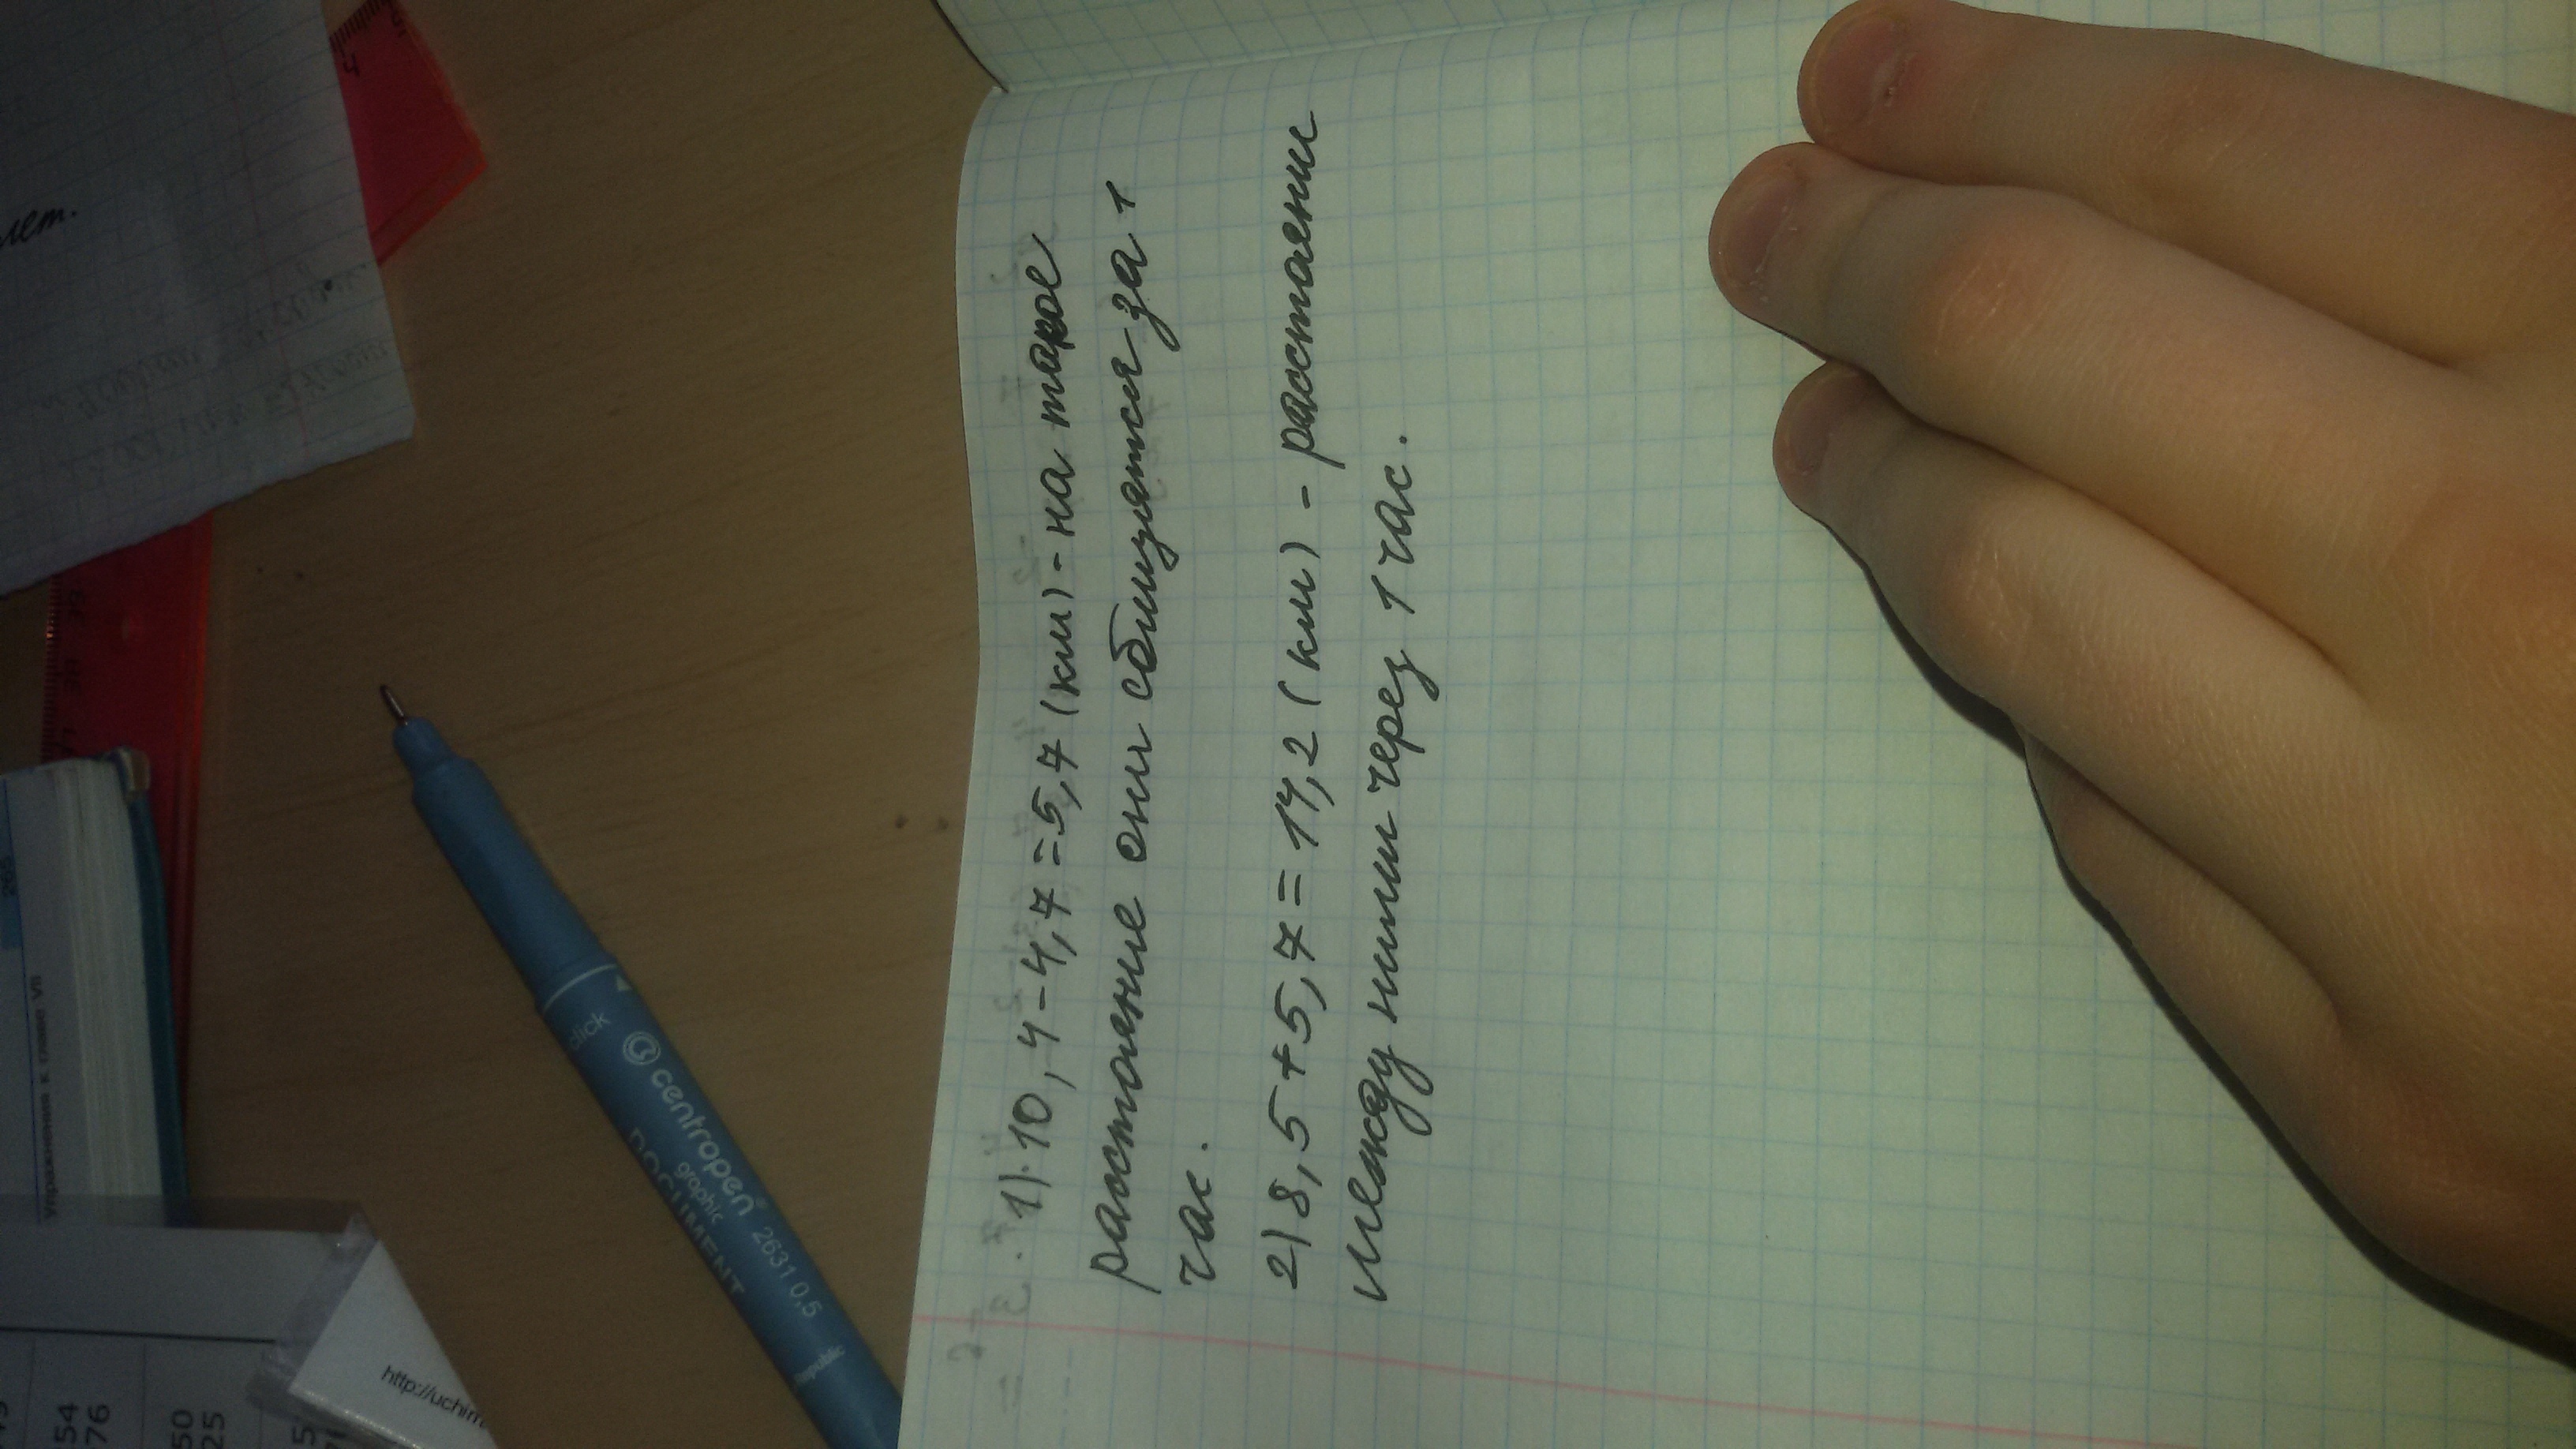 1) 10,4-4,7=5,7 (км) - на такое
растояние они сблизятся за 1
час.
2) 8,5+5,7=14,2 (км) - растояени
между ними через 1 час.
click
centropen
graphic
DOCUMENT
2631 0,5
Republic
Упражнения к главе VII
265
http://uchim
лет.
38 39
54
76
50
25